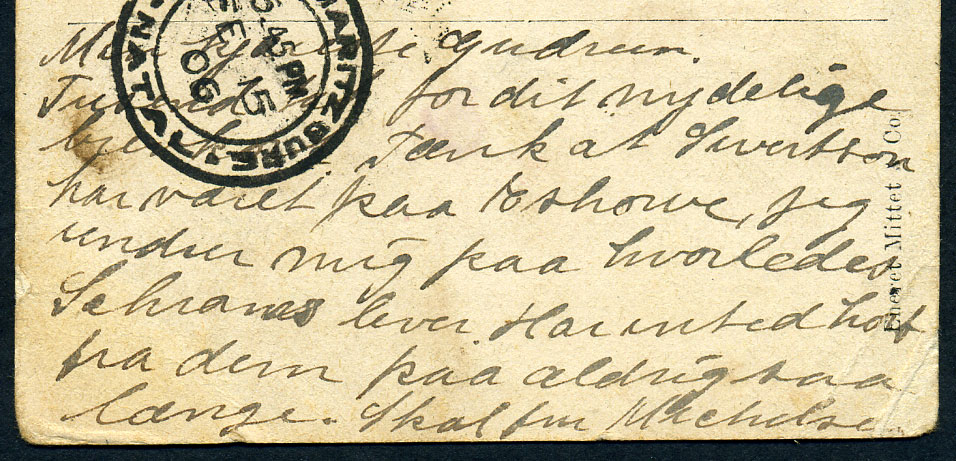 Min kjæreste Gudrun.
Tusend for dit nydelige
brev. Tænk at Sivertson
har været paa Eshowe, jeg
undrer mig paa hvorledes
Schrams lever. Har inted hørt
fra dem paa aldrig saa
længe. Skal fru Michelse
MARITZBURG. NATAL
5.45 PM
FE 15
06
Eneret Mittet & Co.